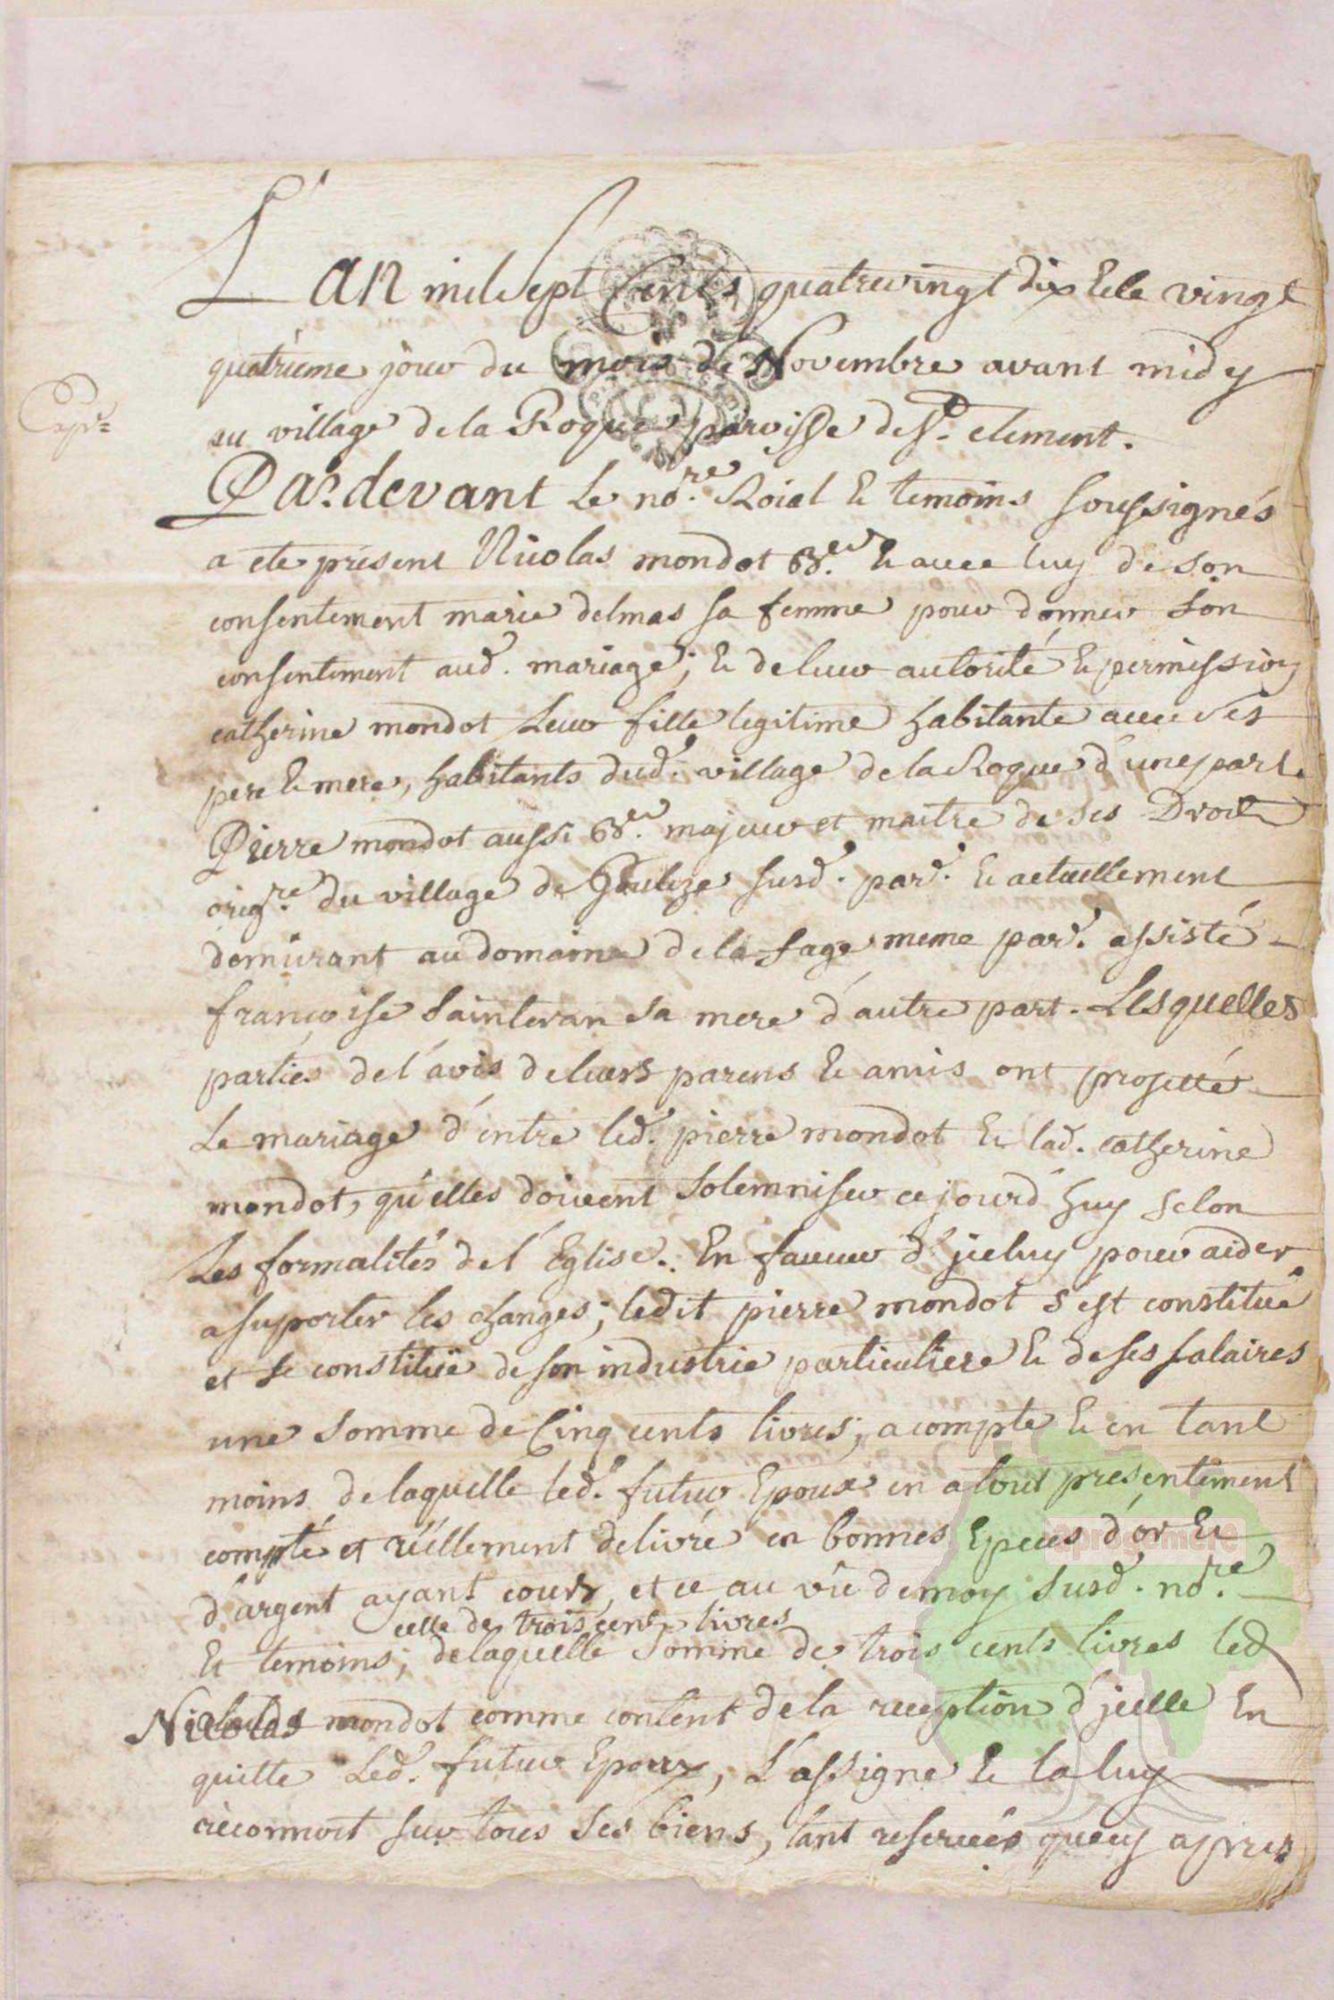 L'an mil sept Cents quatrevingt dix & le vingt
quatrieme jour du mois de Novembre avant midy
au village de la Roque paroisse de St. clement.
Expé
Par devant le nore. Roial & temoins soussignés
a ete présent Nicolas mondot & avec luy de son
consentement marie delmas sa femme pour donner son
consentement aud. mariage; & de leur autorité & permission
catherine mondot leur fille legitime habitante avec ses
pere & mere, habitants dud. village de la Roque d'une part.
Pierre mondot aussi majeur et maitre de ses Droits
origre. du village de susd. par. & actuellement
demeurant au domaine de la fage meme par. assisté
françoise sainteran sa mere d'autre part. Lesquelles
parties de l'avis de leurs parens & amis ont projetté
Le mariage d'entre led. pierre mondot & lad. catherine
mondot, qu'elles doivent solemniser ce jourd'huy selon
Les formalités de l'Eglise. En faveur d'jceluy pour aider
a suporter les charges; ledit pierre mondot s'est constitué
et se constitüe de son industrie particuliere & de ses salaires
une somme de Cinq cents livres; a compte & en tant
moins de laquelle led. futur Epoux en a tout presentement
compté et réellement delivré en bonnes Especes d'or &
d'argent ayant cours, et ce au vû de moy susd. nore.
celle de trois cent livres
Et temoins; de laquelle somme de trois cents livres led
Nicolas mondot comme content de la reception d'jcelle En
quitte Led. futur Epoux, L'assigne & la luy
reconnoit sur tous ses biens, tant reservés qu'cy apres
aprogemere